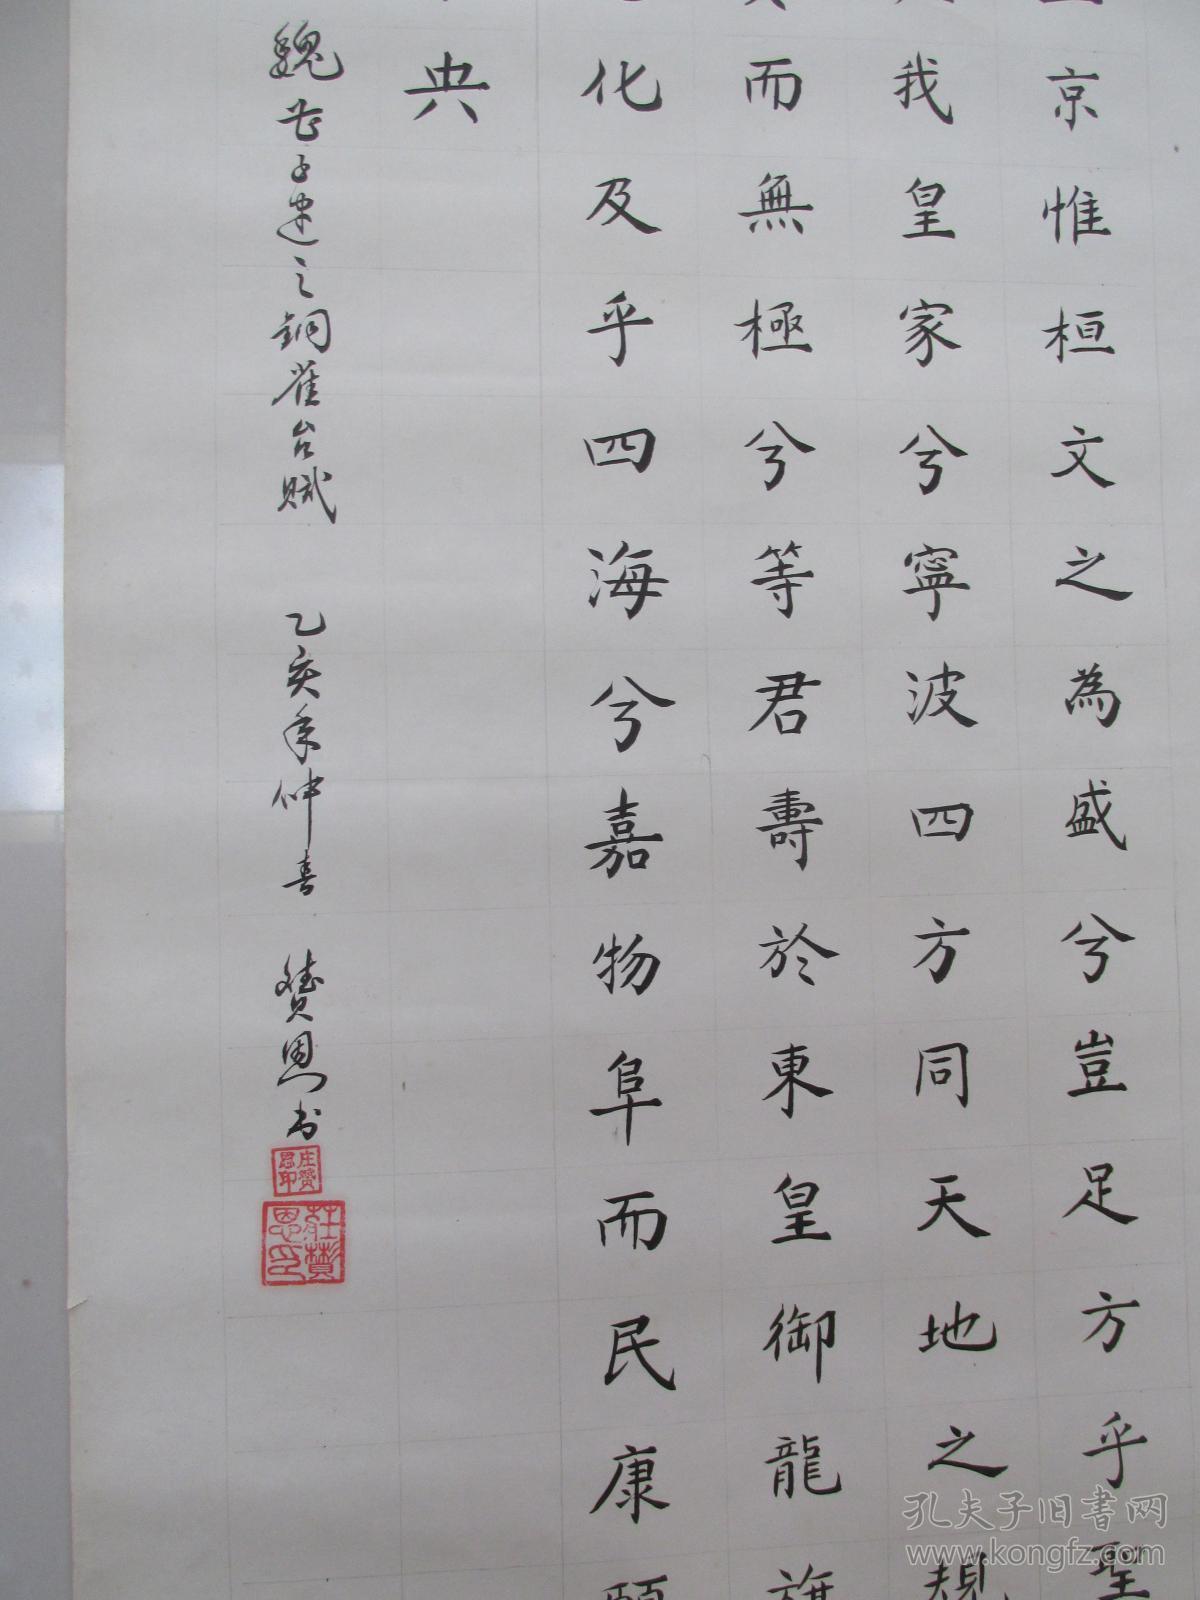 京惟桓文之為盛兮豈足方乎聖
我皇家兮寧波四方同天地之規
而無極兮等君壽於東皇御龍
化及乎四海兮嘉物阜而民康
央
魏曹子建之銅雀台賦 乙亥年仲春 贊恩书
庄赞恩印
莊贊恩印
孔夫子旧书网
www.kongfz.com